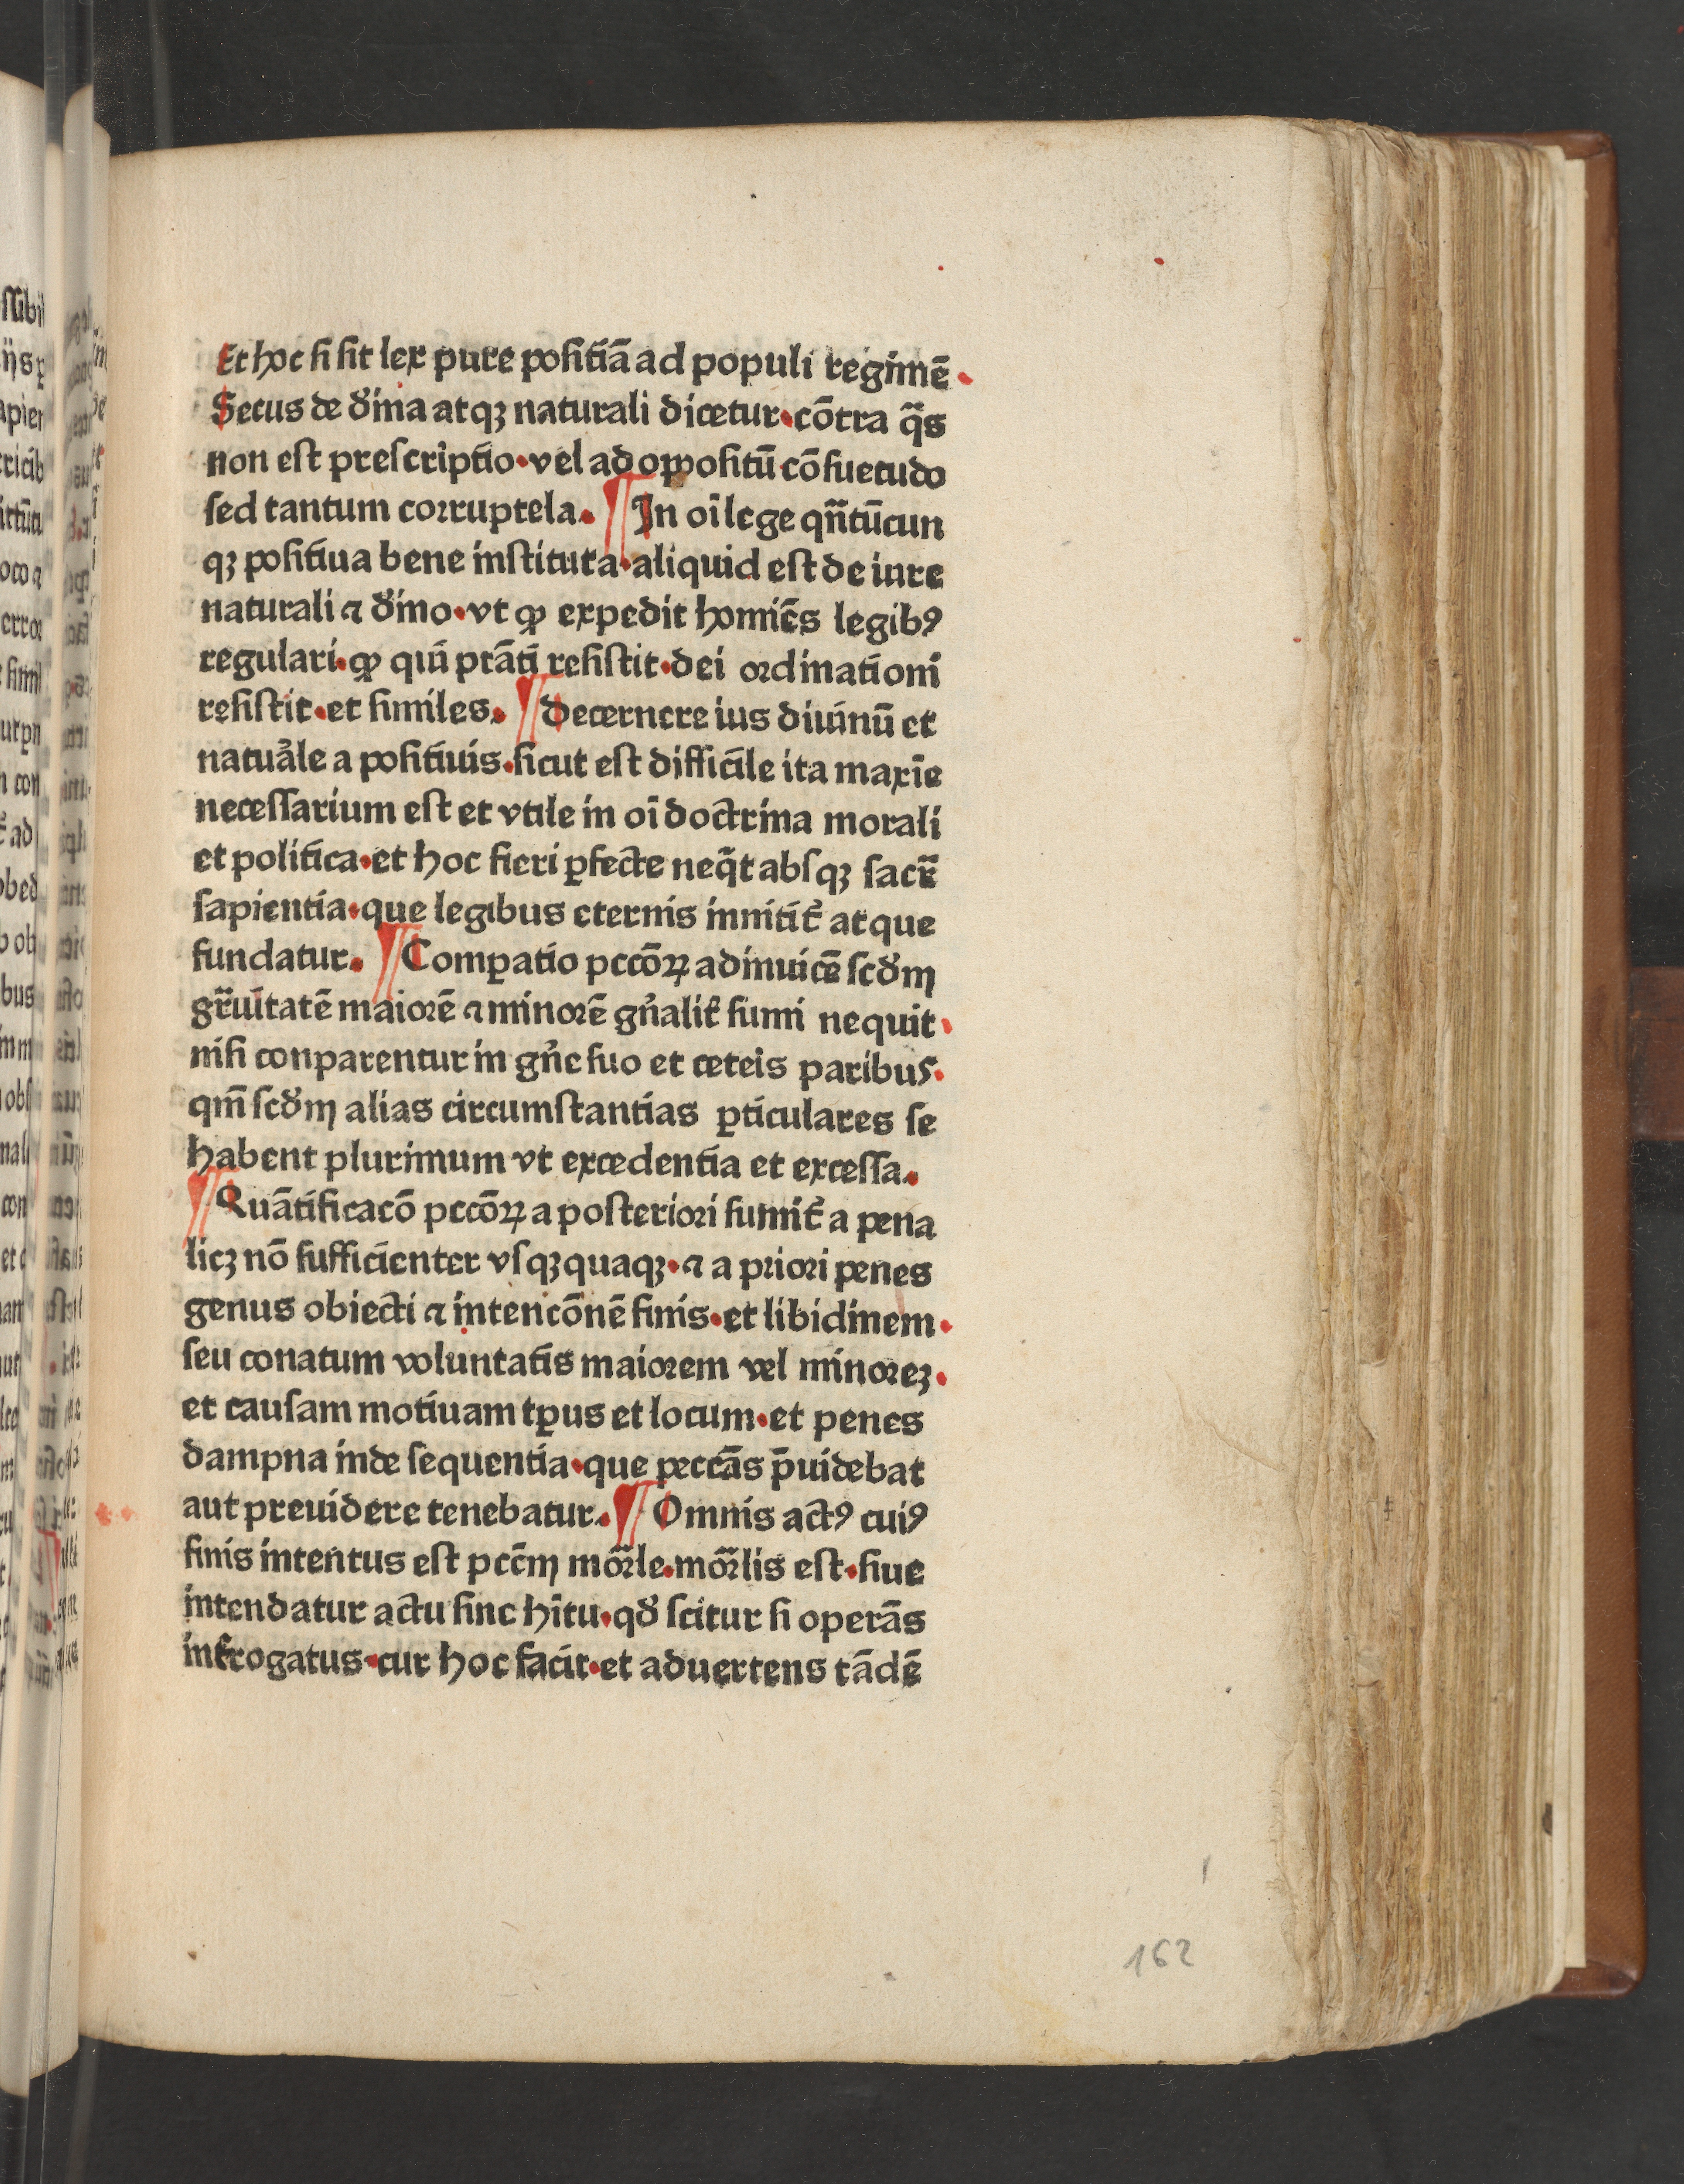 Et hoc si sit lex pure positiā ad populi regimē.
Secus de d̄ina atqꝫ naturali dicetur. cōtra q̄s
non est prescriptio. vel ad oppositū cōsuetudo
sed tantum corruptela. ¶ In oī lege qñtūcun
qꝫ positiua bene instituta. aliquid est de iure
naturali ⁊ d̄ino. vt ꝙ expedit homiēs legibꝰ
regulari. ꝙ qui ptāti resistit. dei ordinationi
resistit. et similes. ¶ Decernere ius diuinū et
natuāle a positiuis. sicut est difficile ita maxīe
necessarium est et vtile in oī doctrina morali
et politica. et hoc fieri ꝑfecte neq̄t absqꝫ sacr̄
sapientia. que legibus eternis innitit̄ atque
fundatur. ¶ Comꝑatio pccōꝝ adinuicē scd̄m
gr̄uitatē maiorē ⁊ minorē gn̄alit̄ sumi nequit.
nisi conparentur in gn̄e suo et ceteis paribus.
qm̄ scd̄m alias circumstantias ꝑticulares se
habent plurimum vt excedentia et excessa.
¶ Quātificacō pccōꝝ a posteriori sumit̄ a pena
licꝫ nō sufficienter vsqꝫquaqꝫ. ⁊ a priori penes
genus obiecti ⁊ intencōnē finis. et libidinem.
seu conatum voluntatis maiorem vel minoreꝫ.
et causam motiuam tꝑus et locum. et penes
dampna inde sequentia. que peccās p̄uidebat
aut preuidere tenebatur. ¶ Omnis actꝰ cuiꝰ
finis intentus est pccm̄ mōrle. mōrlis est. siue
intendatur actu siue hītu. qd̄ scitur si operās
int̄rogatus. cur hoc facit. et aduertens tādē
162